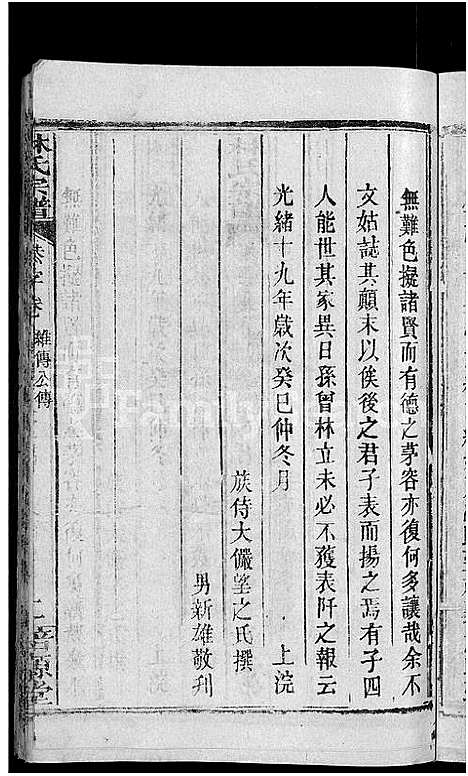 無難色擬諸賢而有德之茅容亦復何多讓哉余不
文姑誌其顛末以俟後之君子表而揚之焉有子四
人能世其家異日孫曾林立未必不獲表阡之報云
光緒十九年歲次癸巳仲冬月 上浣
族侍大儼望之氏撰
男新雄敬刋
林氏宗譜 雄傳公傳 二